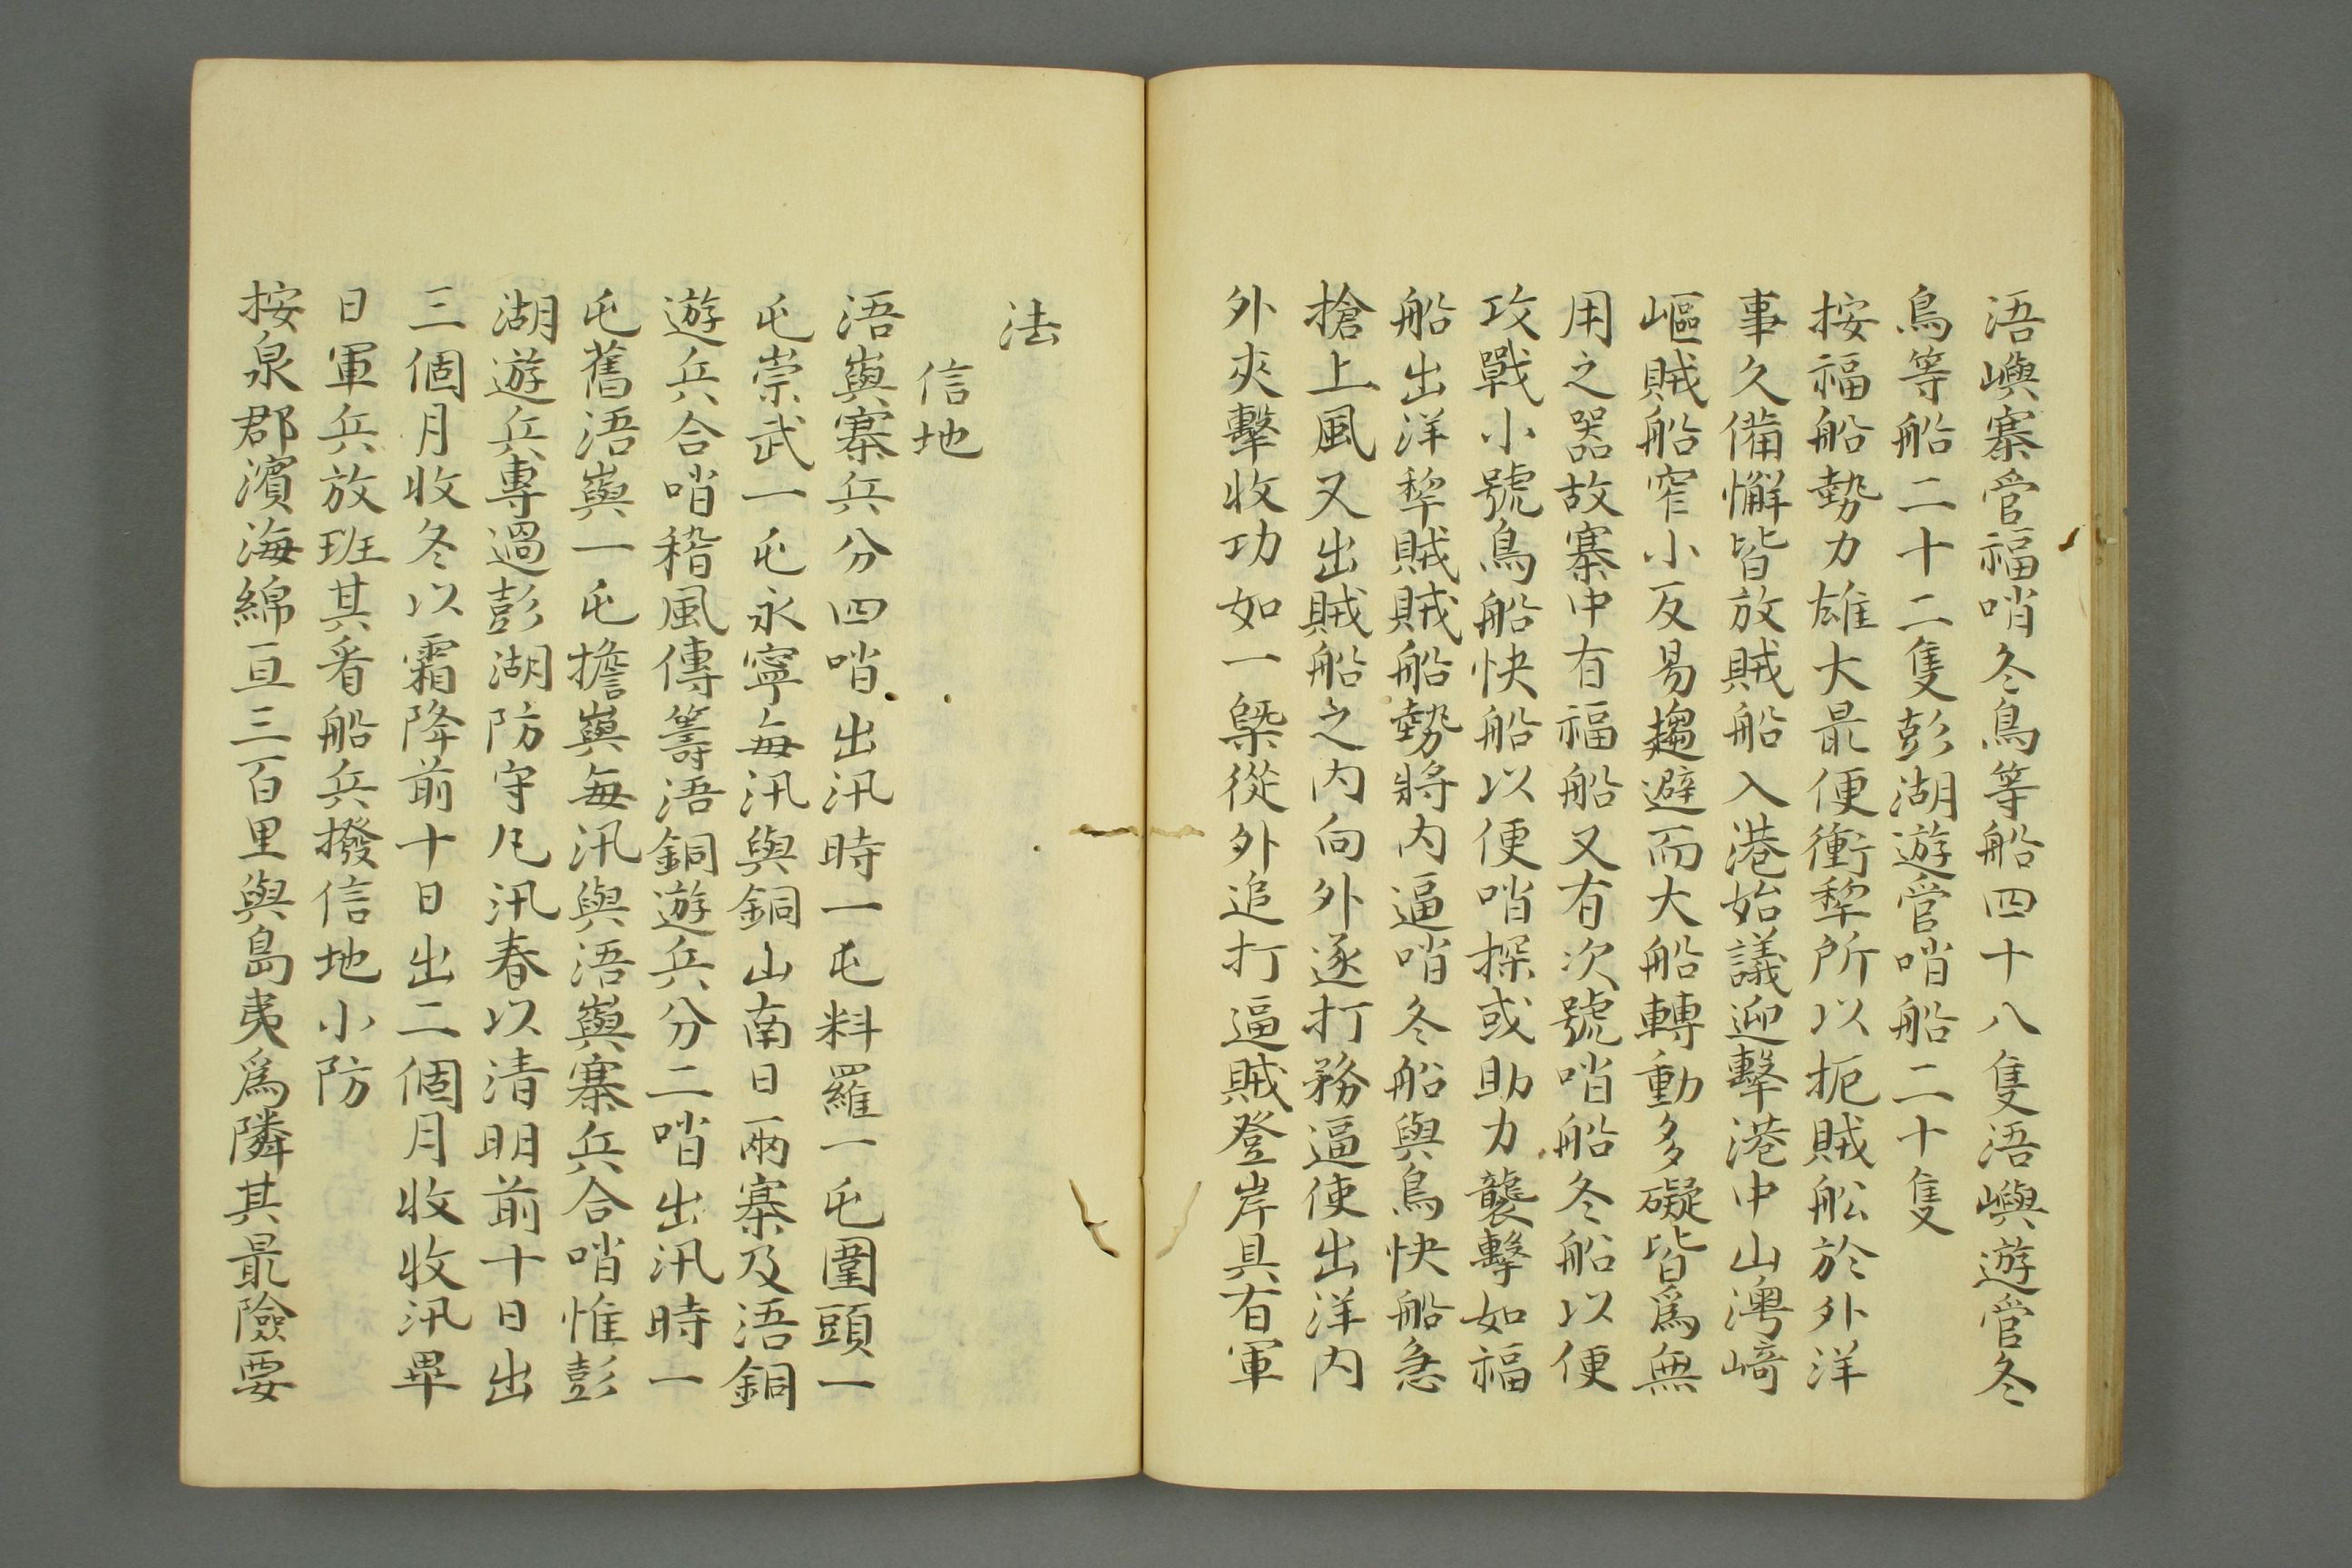 浯嶼寨管福哨冬鳥等船四十八隻浯嶼遊管冬
鳥等船二十二隻彭湖遊管哨船二十隻
按福船勢力雄大最便衝犂所以扼賊舩於外洋
事久備懈皆放賊船入港始議迎擊港中山澳﨑
嶇賊船窄小反易趨避而大船轉動多礙皆爲無
用之器故寨中有福船又有次號哨船冬船以便
攻戰小號鳥船快船以便哨探或助力襲擊如福
船出洋犂賊賊船勢將内逼哨冬船與鳥快船急
搶上風又出賊船之内向外逐打務逼使出洋内
外夾擊收功如一槩從外追打逼賊登岸具有軍
法
信地
浯嶼寨兵分四哨出汛時一屯料羅一屯圍頭一
屯崇武一屯永寧每汛與銅山南日兩寨及浯銅
遊兵合哨稽風傳籌浯銅遊兵分二哨出汛時一
屯舊浯嶼一屯擔嶼每汛與浯嶼寨兵合哨惟彭
湖遊兵專過彭湖防守凡汛春以清明前十日出
三個月收冬以霜降前十日出二個月收收汛畢
日軍兵放班其看船兵撥信地小防
按泉郡濱海綿亘三百里與島夷爲隣其最險要